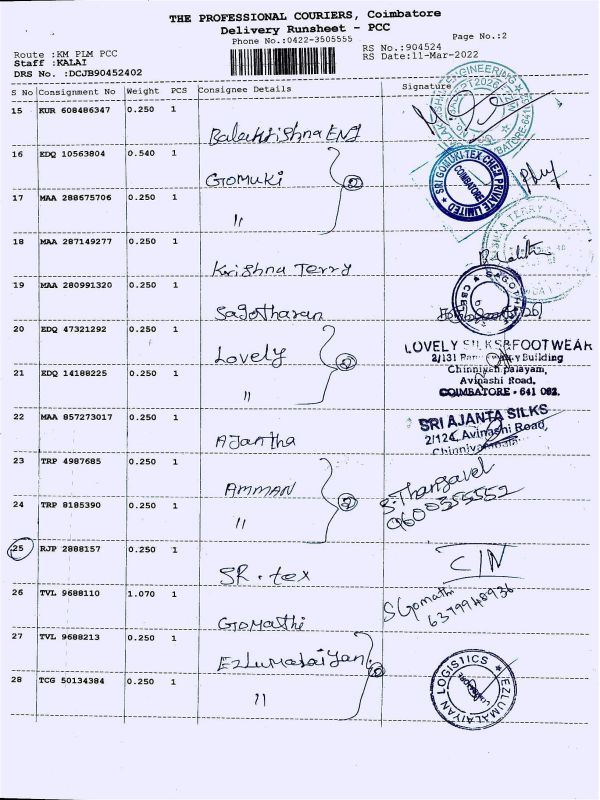 THE PROFESSIONAL COURIERS, Coimbatore
Delivery Runsheet - PCC
Phone No.:0422-3505555
Page No.:2
Route :KM PLM PCC
RS No.:904524
Staff :KALAI
RS Date:11-Mar-2022
DRS No. :DCJB90452402
S No Consignment No Weight PCS Consignee Details Signature
15 KUR 608486347 0.250 1
Balakrishna ENJ
16 EDQ 10563804 0.540 1
GOMUKI 2
SRI GOMUKI TEX CHEM PRIVATE LIMITED
COIMBATORE
17 MAA 288675706 0.250 1
"
18 MAA 287149277 0.250 1
Krishna Terry
19 MAA 280991320 0.250 1
Sagotharan
20 EDQ 47321292 0.250 1
Lovely 2
LOVELY SILKS&FOOTWEAR
2/131 Building
Chinniyah palayam,
Avinashi Road,
COIMBATORE - 641 062.
21 EDQ 14188225 0.250 1
"
22 MAA 857273017 0.250 1
Ajantha
SRI AJANTA SILKS
2/124, Avinashi Road,
23 TRP 4987685 0.250 1
AMMAN 2
S. Thangavel
9600355552
24 TRP 8185390 0.250 1
"
25 RJP 2888157 0.250 1
SR. tex
C/N
26 TVL 9688110 1.070 1
Gomathi
S Gomathi
6379948936
27 TVL 9688213 0.250 1
Ezlumalaiyan 2
EZLUMALAIYAN LOGISTICS
28 TCG 50134384 0.250 1
"